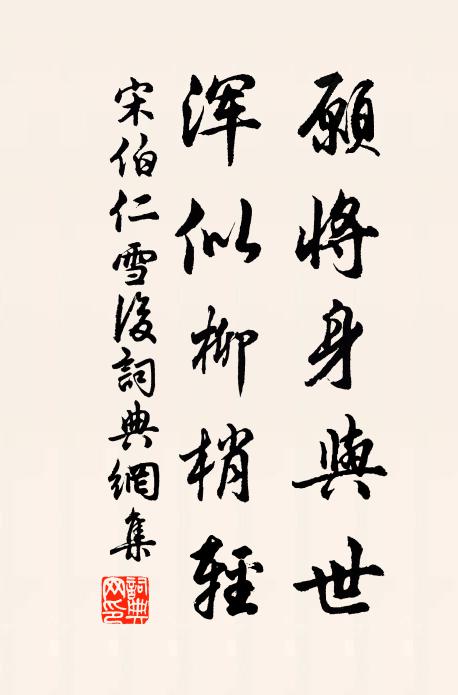 願將身與世
渾似柳梢輕
宋伯仁雪後詞典網集
詞典網印